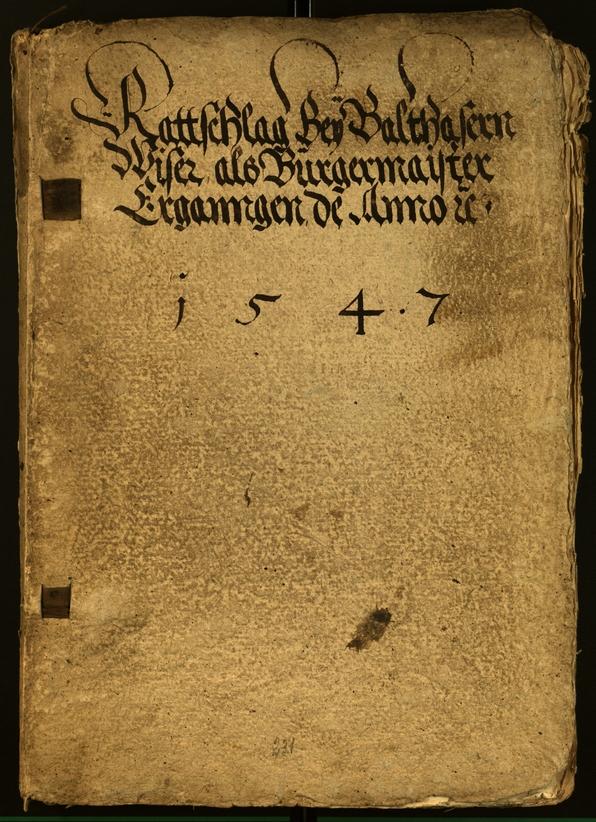 Rattschlag bey Balthasern
Wiser als Burgermaister
Erganngen de Anno ꝛc ·
1 5 4 · 7
231